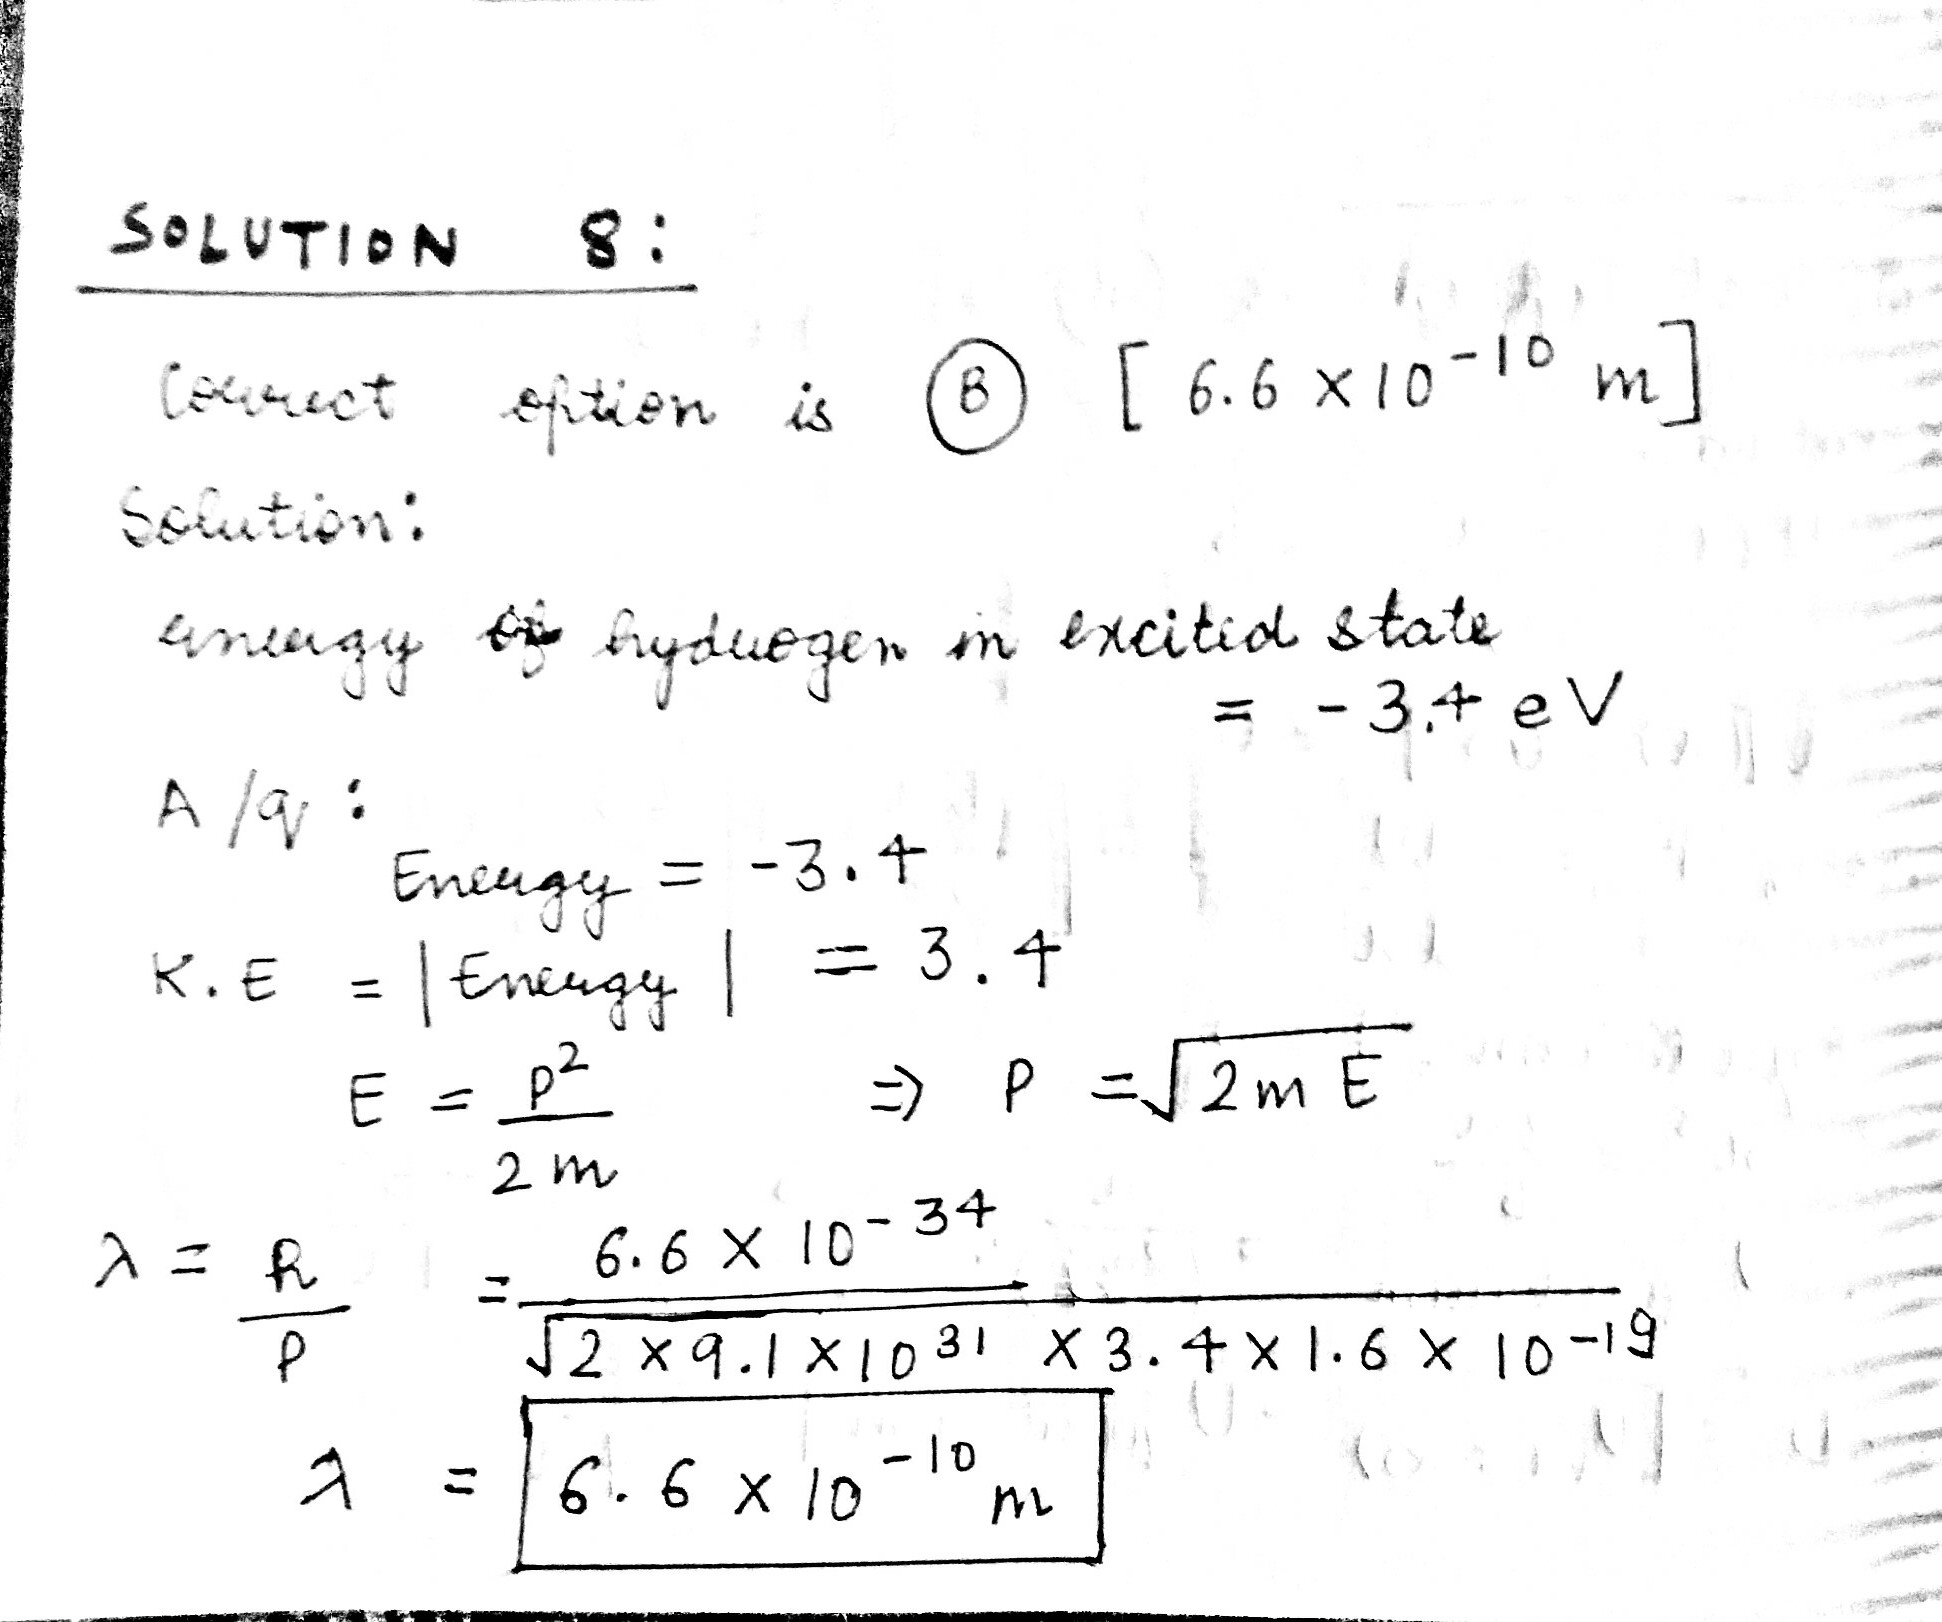 SOLUTION 8:
Correct option is (B) [6.6 × 10⁻¹⁰ m]
Solution:
energy of hydrogen in excited state
= -3.4 eV
A/q:
Energy = -3.4
K.E = |Energy| = 3.4
E = P²/2m ⇒ P = √2mE
λ = h/P = 6.6 × 10⁻³⁴ / √2 × 9.1 × 10³¹ × 3.4 × 1.6 × 10⁻¹⁹
λ = 6.6 × 10⁻¹⁰ m